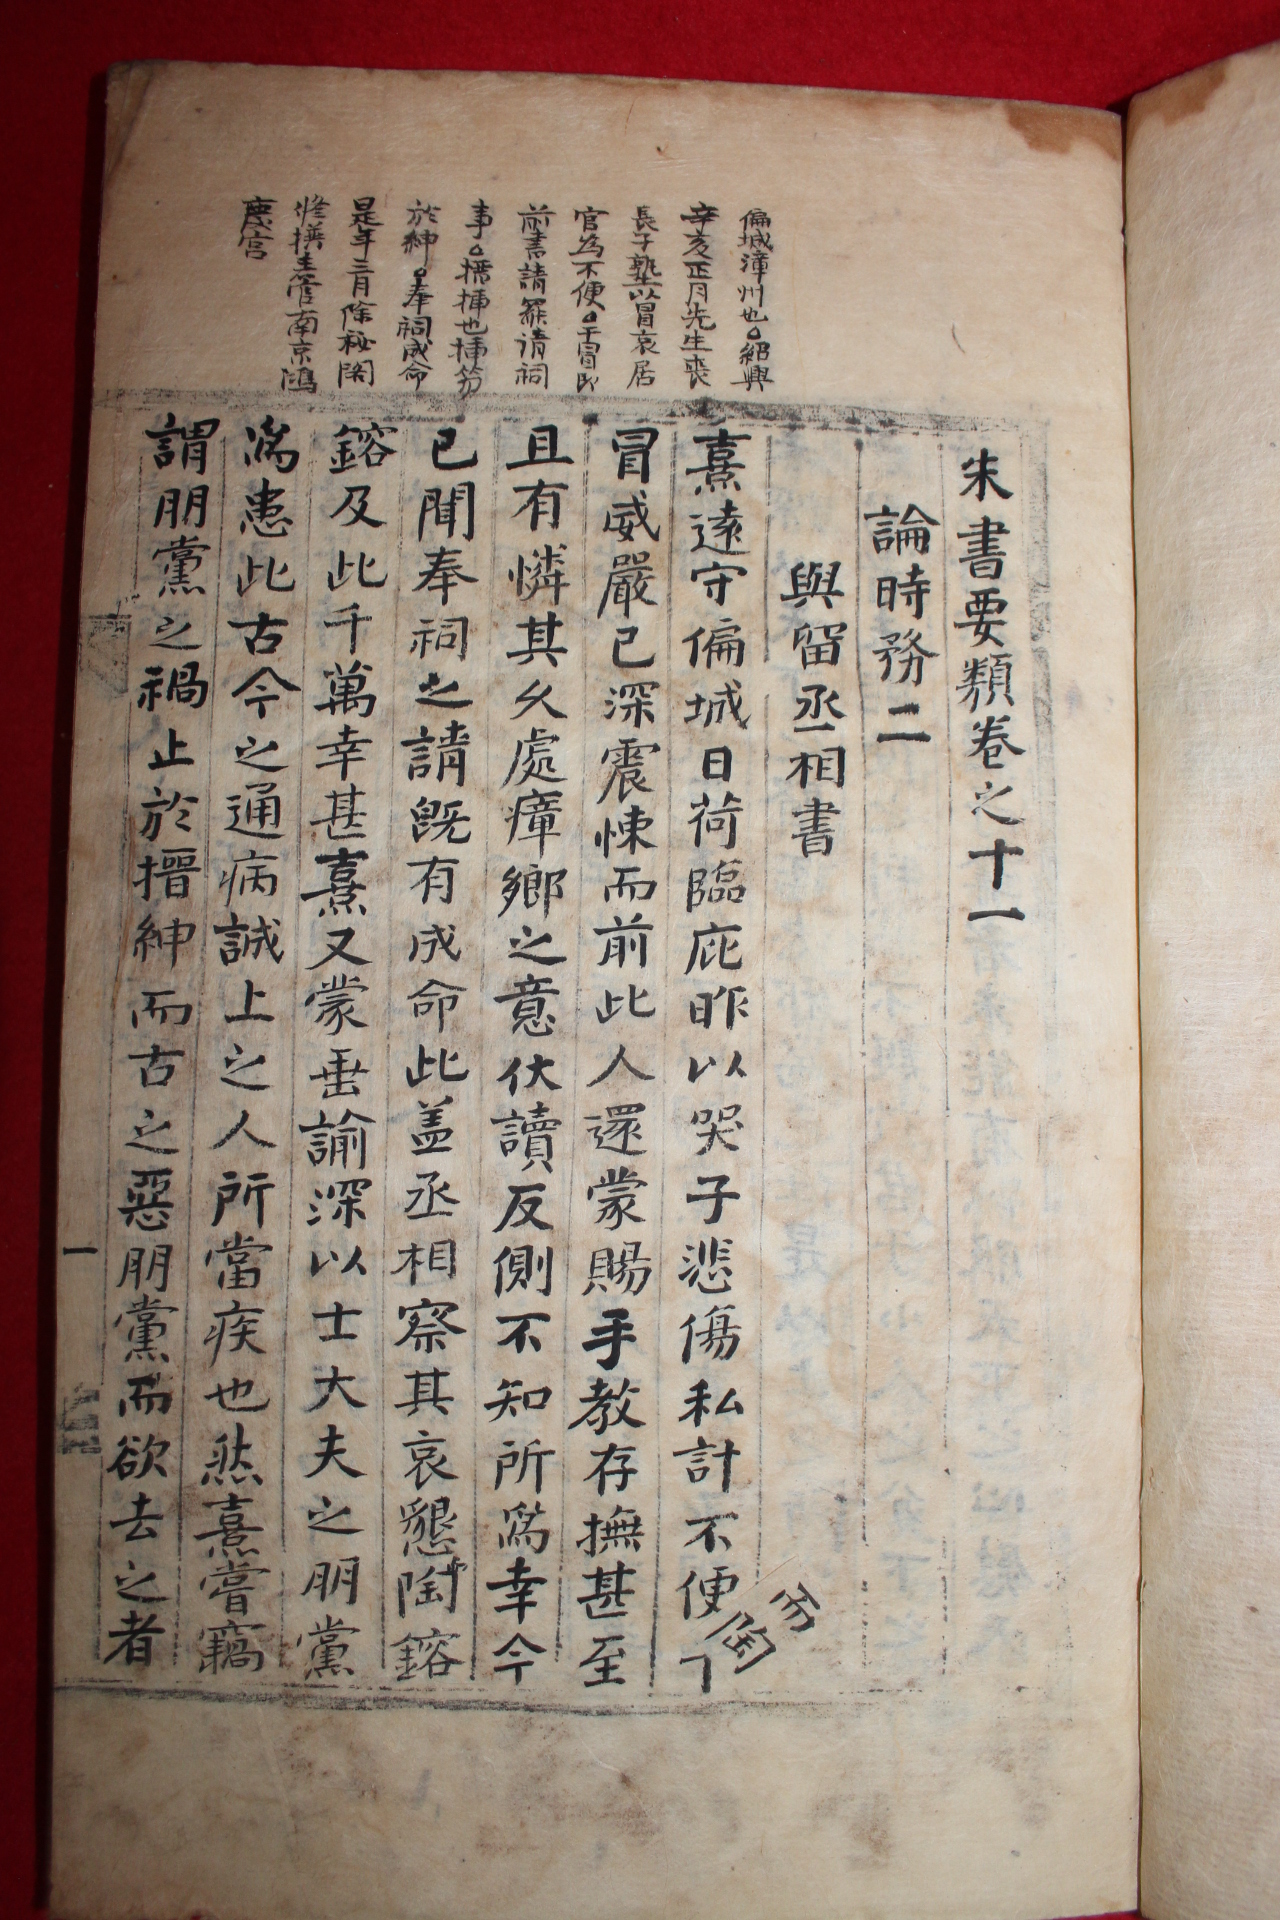 偏城漳州也。紹興
辛亥正月先生喪
長子塾以冒哀居
官為不便。干冒即
前書請罷請祠
事。搢插也插笏
於紳。奉祠成命
是年三月除秘閣
修撰主管南京鴻
慶宮
朱書要類卷之十一
論時務二
與留丞相書
熹遠守偏城日荷臨庇昨以哭子悲傷私計不便
而陶
冒威嚴已深震悚而前此人還蒙賜手教存撫甚至
且有憐其久處瘴鄉之意伏讀反側不知所爲幸今
已聞奉祠之請旣有成命此盖丞相察其哀懇陶鎔
鎔及此千萬幸甚熹又蒙垂諭深以士大夫之朋黨
爲患此古今之通病誠上之人所當疾也然熹嘗竊
謂朋黨之禍止於搢紳而古之惡朋黨而欲去之者
一